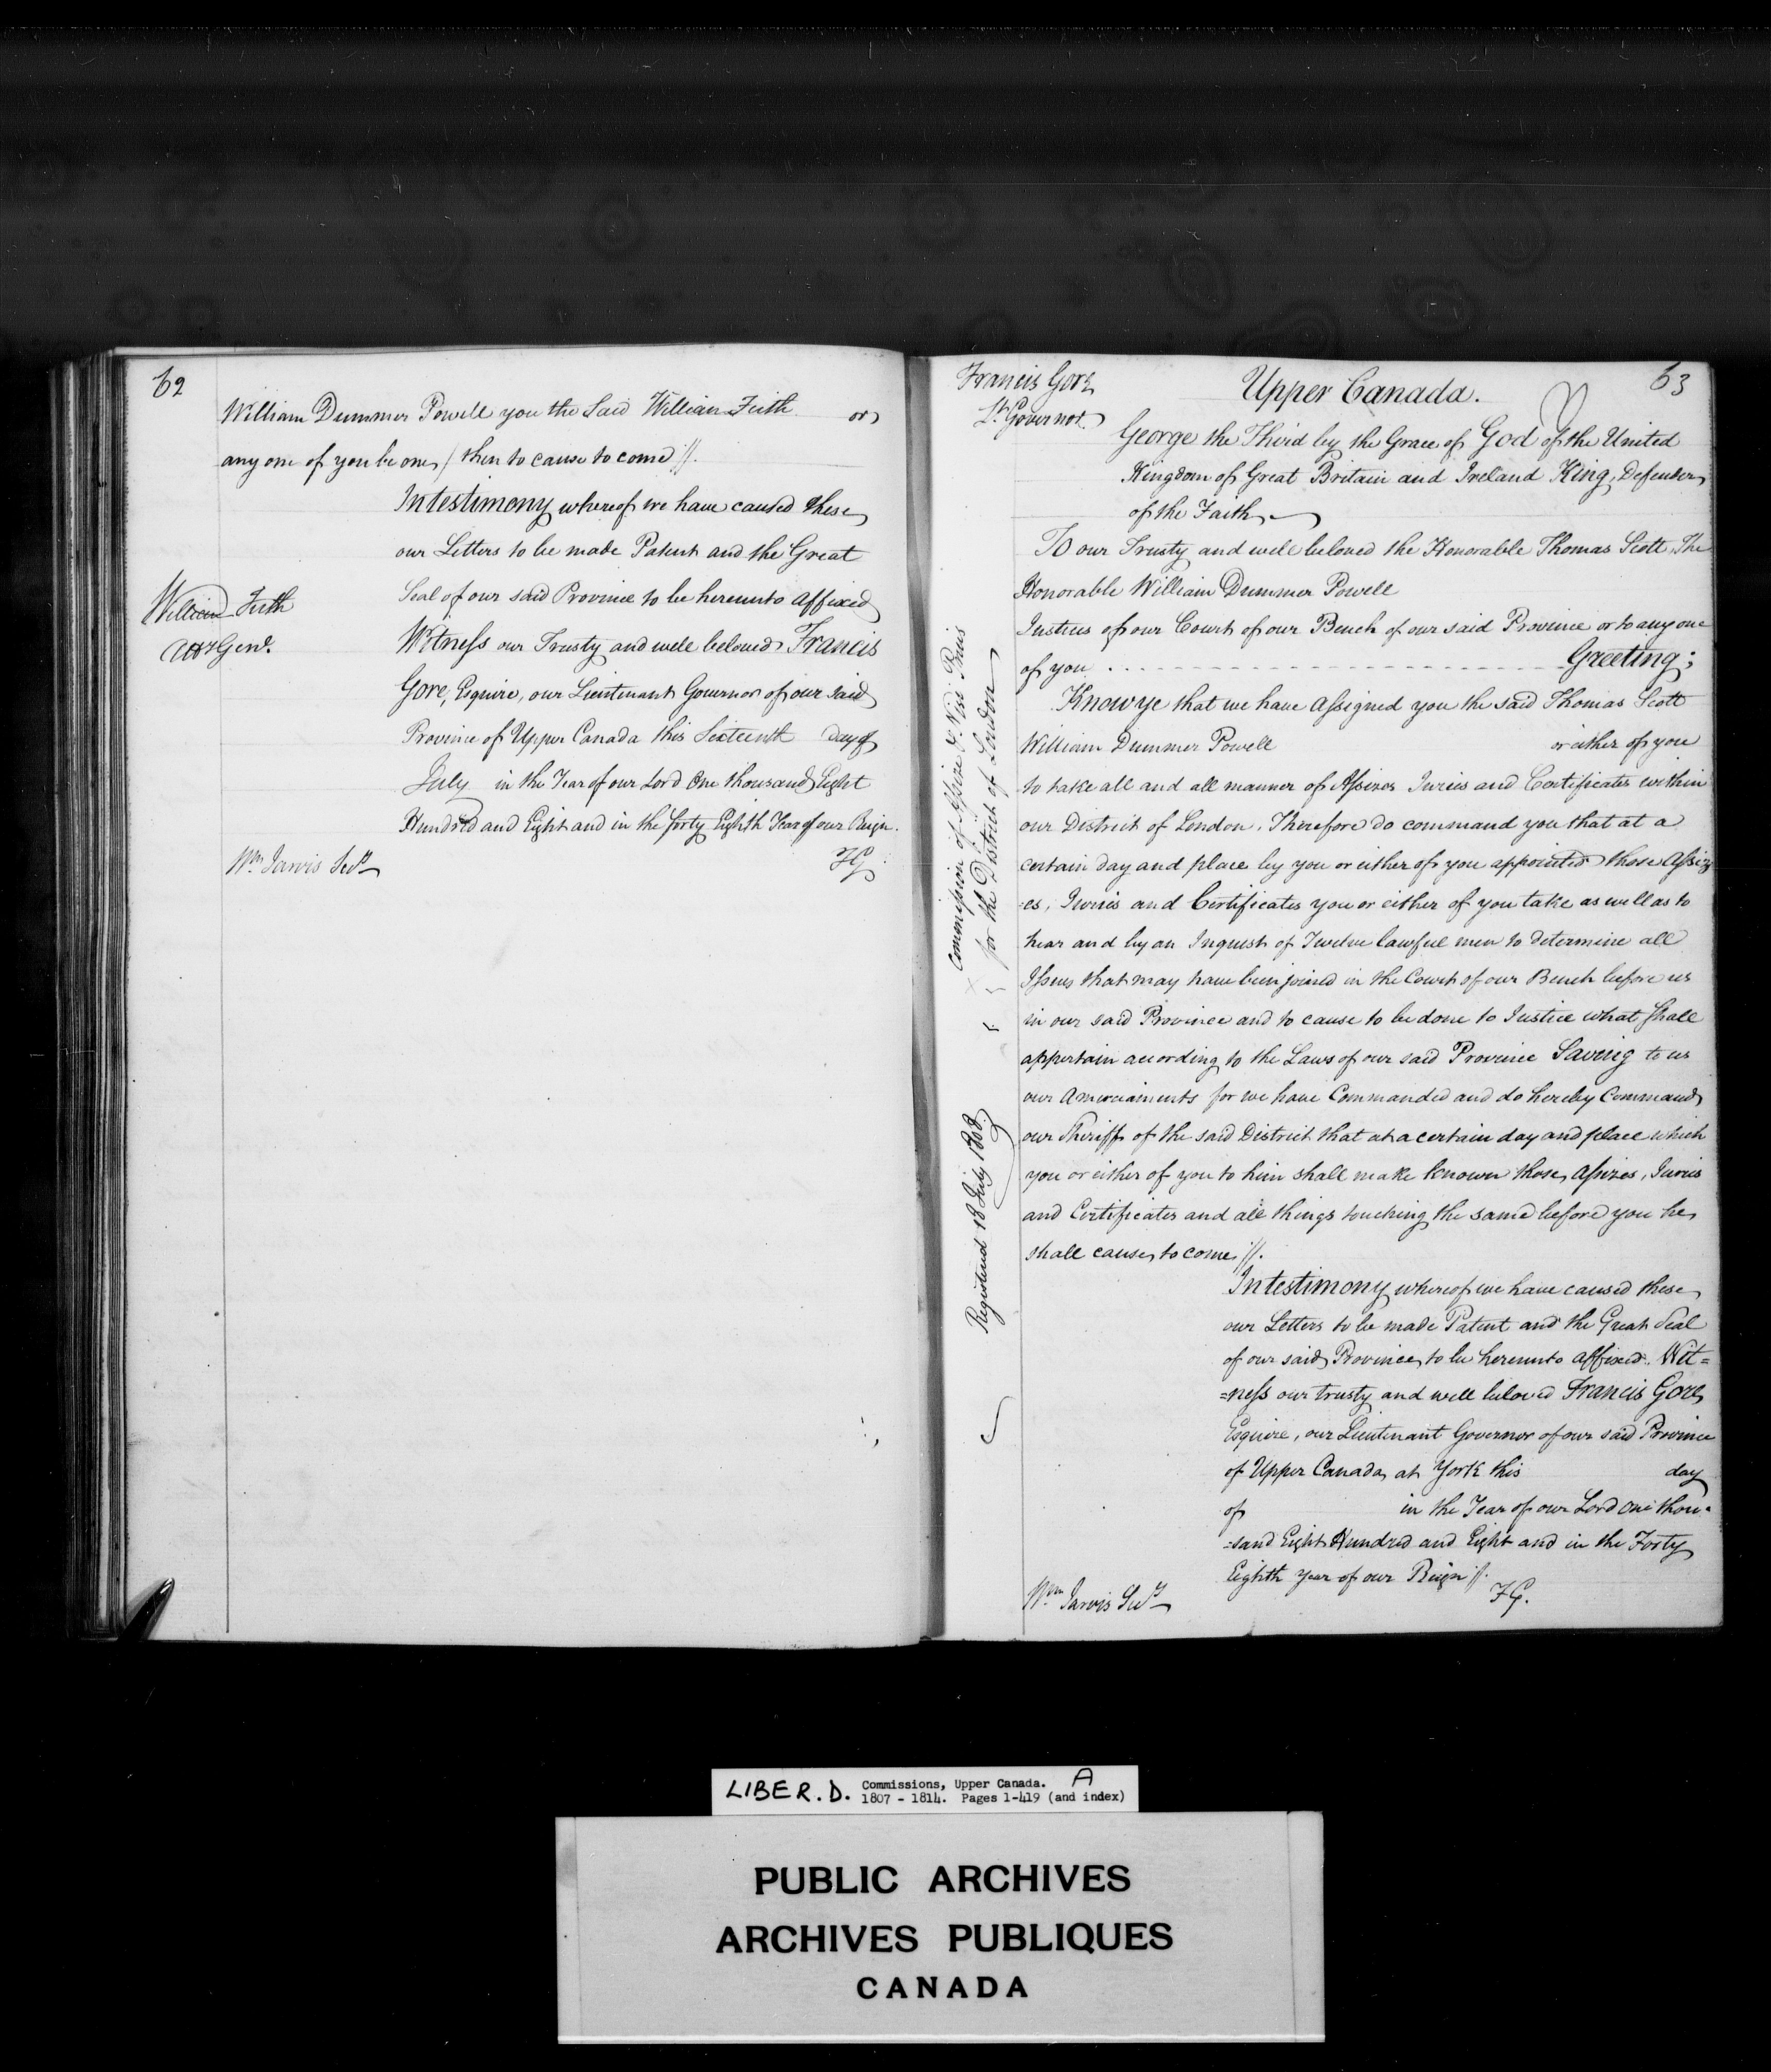 62
William Dummer Powell you the Said William Firth or
any one of you be one / then to cause to come //.
In testimony whereof we have caused these
our Letters to be made Patent and the Great
Seal of our said Province to be hereunto Affixed
William Firth
Atty Genl.
Witness our Trusty and well beloved Francis
Gore, Esquire, our Lieutenant Governor of our said
Province of Upper Canada this Sixteenth day of
July in the Year of our Lord One thousand Eight
Hundred and Eight and in the forty Eighth Year of our Reign.
Wm. Jarvis Secy
FG
63
Francis Gore
Lt. Governor
Upper Canada.
George the Third by the Grace of God of the United
Kingdom of Great Britain and Ireland King, Defender
of the Faith
To our Trusty and well beloved the Honorable Thomas Scott, The
Honorable William Dummer Powell
Justices of our Court of our Bench of our said Province or to any one
of you Greeting;
Know ye that we have Assigned you the said Thomas Scott
William Dummer Powell or either of you
to take all and all manner of Assizes Juries and Certificates within
our District of London. Therefore do command you that at a
certain day and place by you or either of you appointed those Assiz
=es, Juries and Certificates you or either of you take as well as to
hear and by an Inquest of Twelve lawful men to determine all
Issues that may have been joined in the Court of our Bench before us
in our said Province and to cause to be done to Justice what shall
appertain according to the Laws of our said Province Saving to us
our Amerciaments for we have Commanded and do hereby Command
our Sheriff of the said District that at a certain day and place which
you or either of you to him shall make known those Assizes, Juries
and Certificates and all things touching the same before you he
shall cause to come //.
In testimony whereof we have caused these
our Letters to be made Patent and the Great Seal
of our said Province to be hereunto affixed. Wit=
=ness our trusty and well beloved Francis Gore
Esquire, our Lieutenant Governor of our said Province
of Upper Canada, at York this day
of in the Year of our Lord one thou=
=sand Eight Hundred and Eight and in the Forty
Eighth year of our Reign //.
Wm. Jarvis Secy
FG.
Commission of Assize & Nisi Prius
for the District of London
Registered 18 July 1808.
LIBER. D. Commissions, Upper Canada. A
1807 - 1814. Pages 1-419 (and index)
PUBLIC ARCHIVES
ARCHIVES PUBLIQUES
CANADA